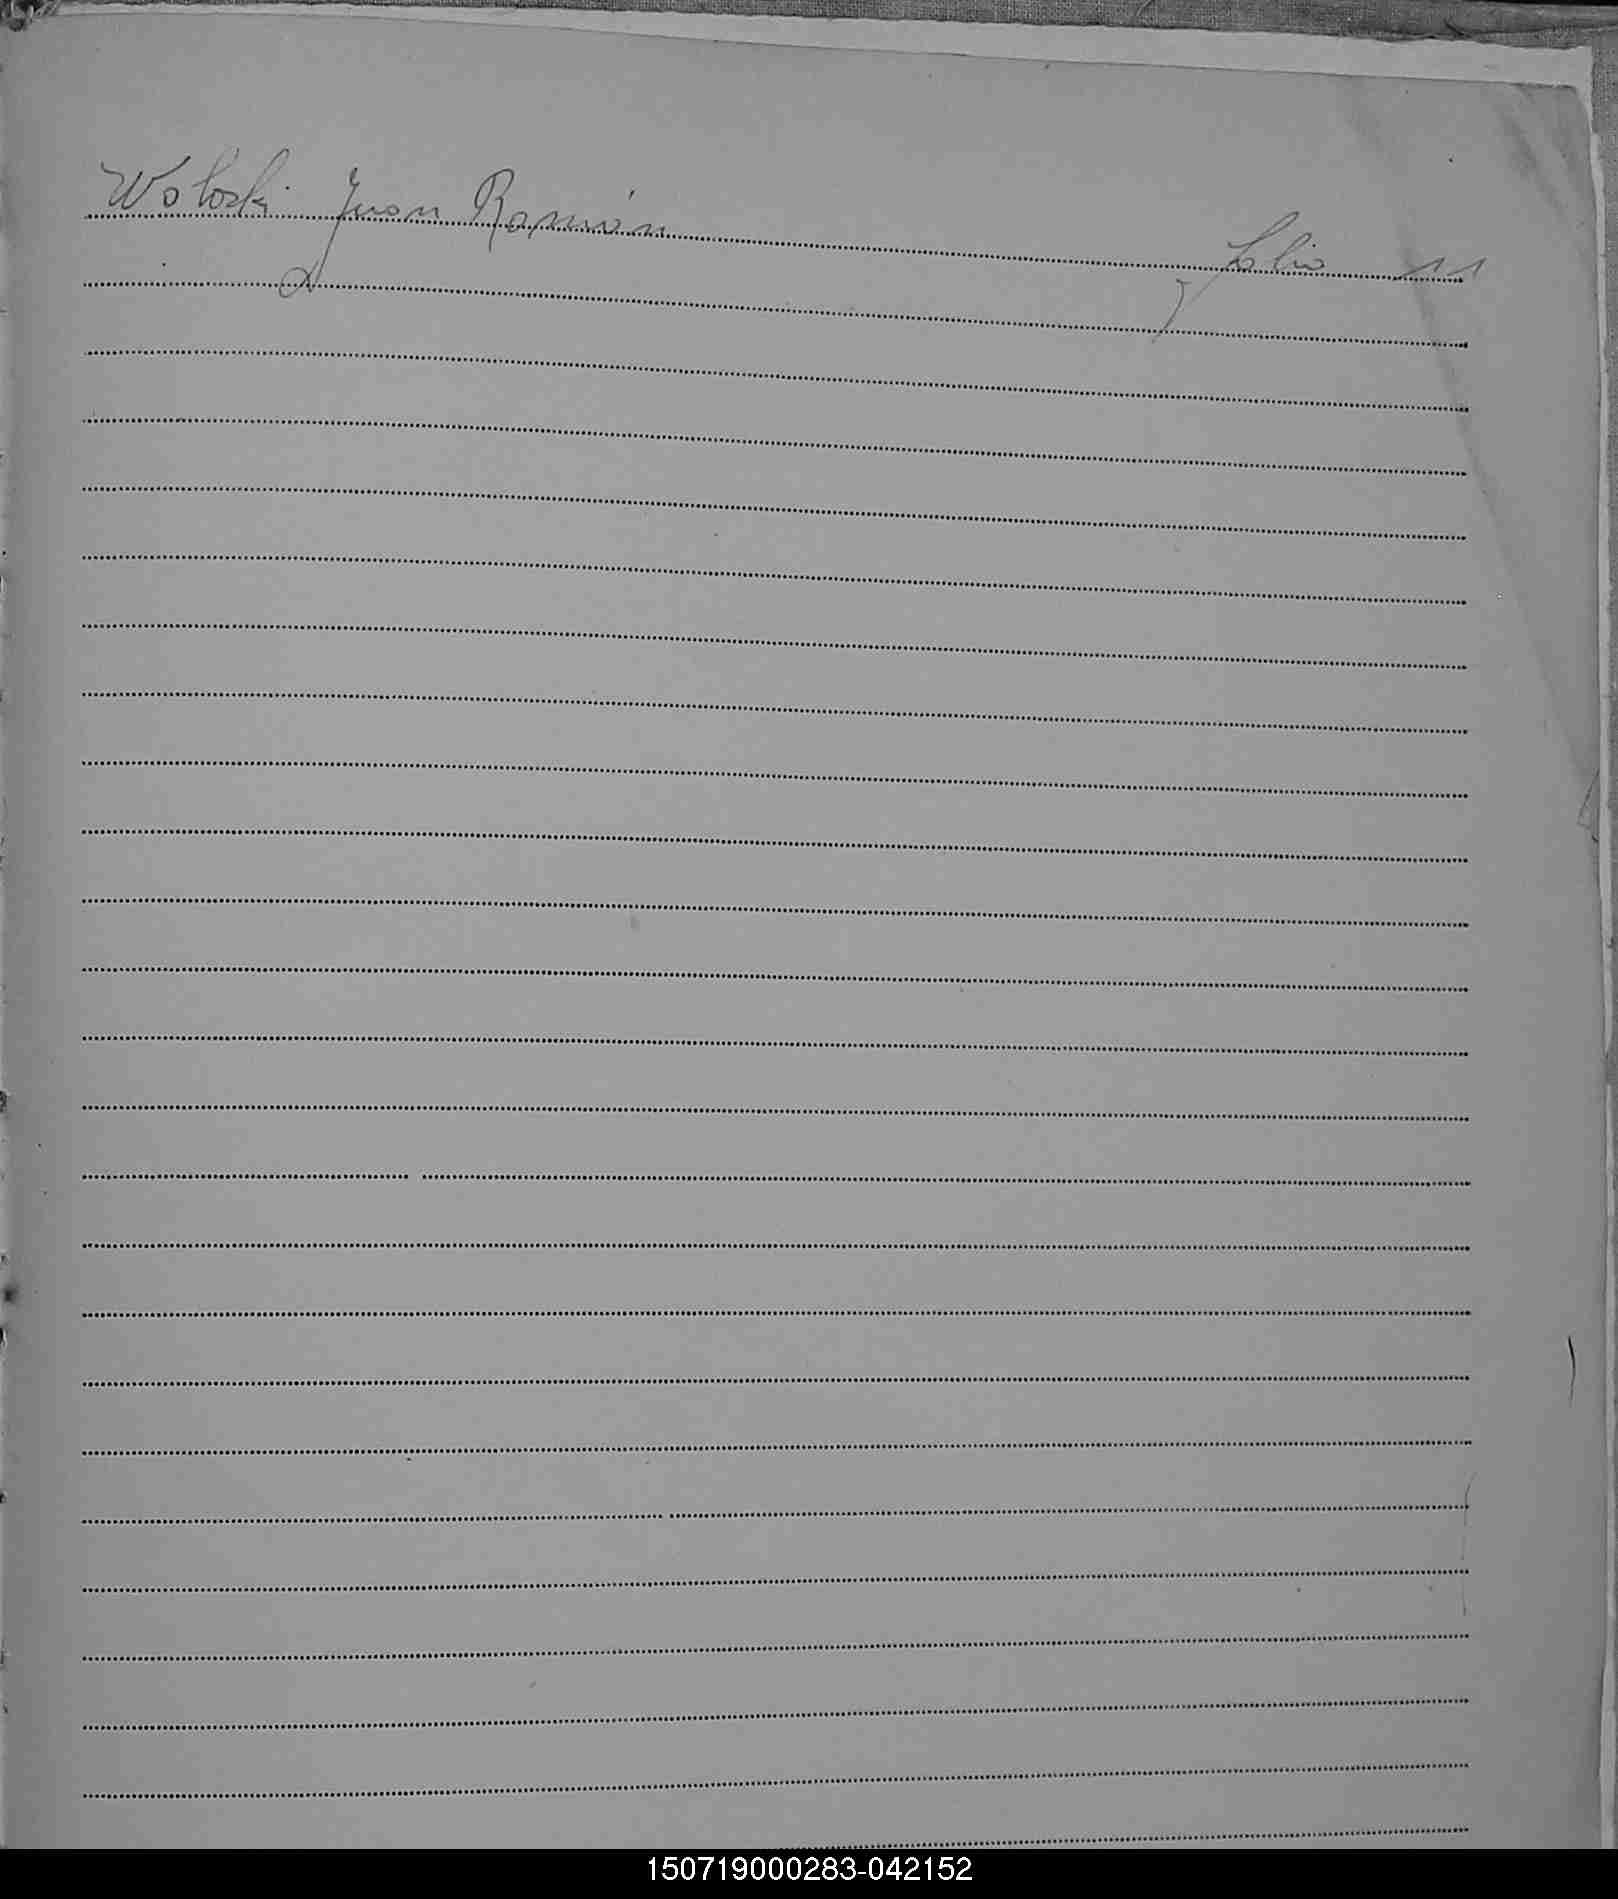 Woloski Juan Ramón folio 11
150719000283-042152